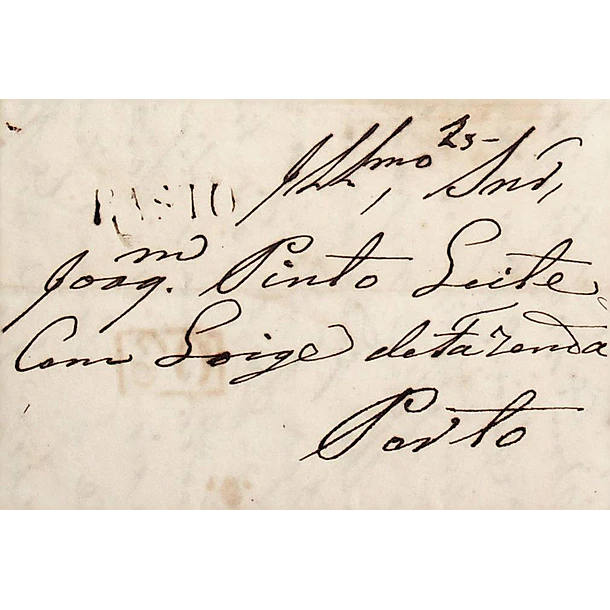 Illmo Snr,
BASTO
Joaqm. Pinto Leite
Com Loige de Fazenda
Porto